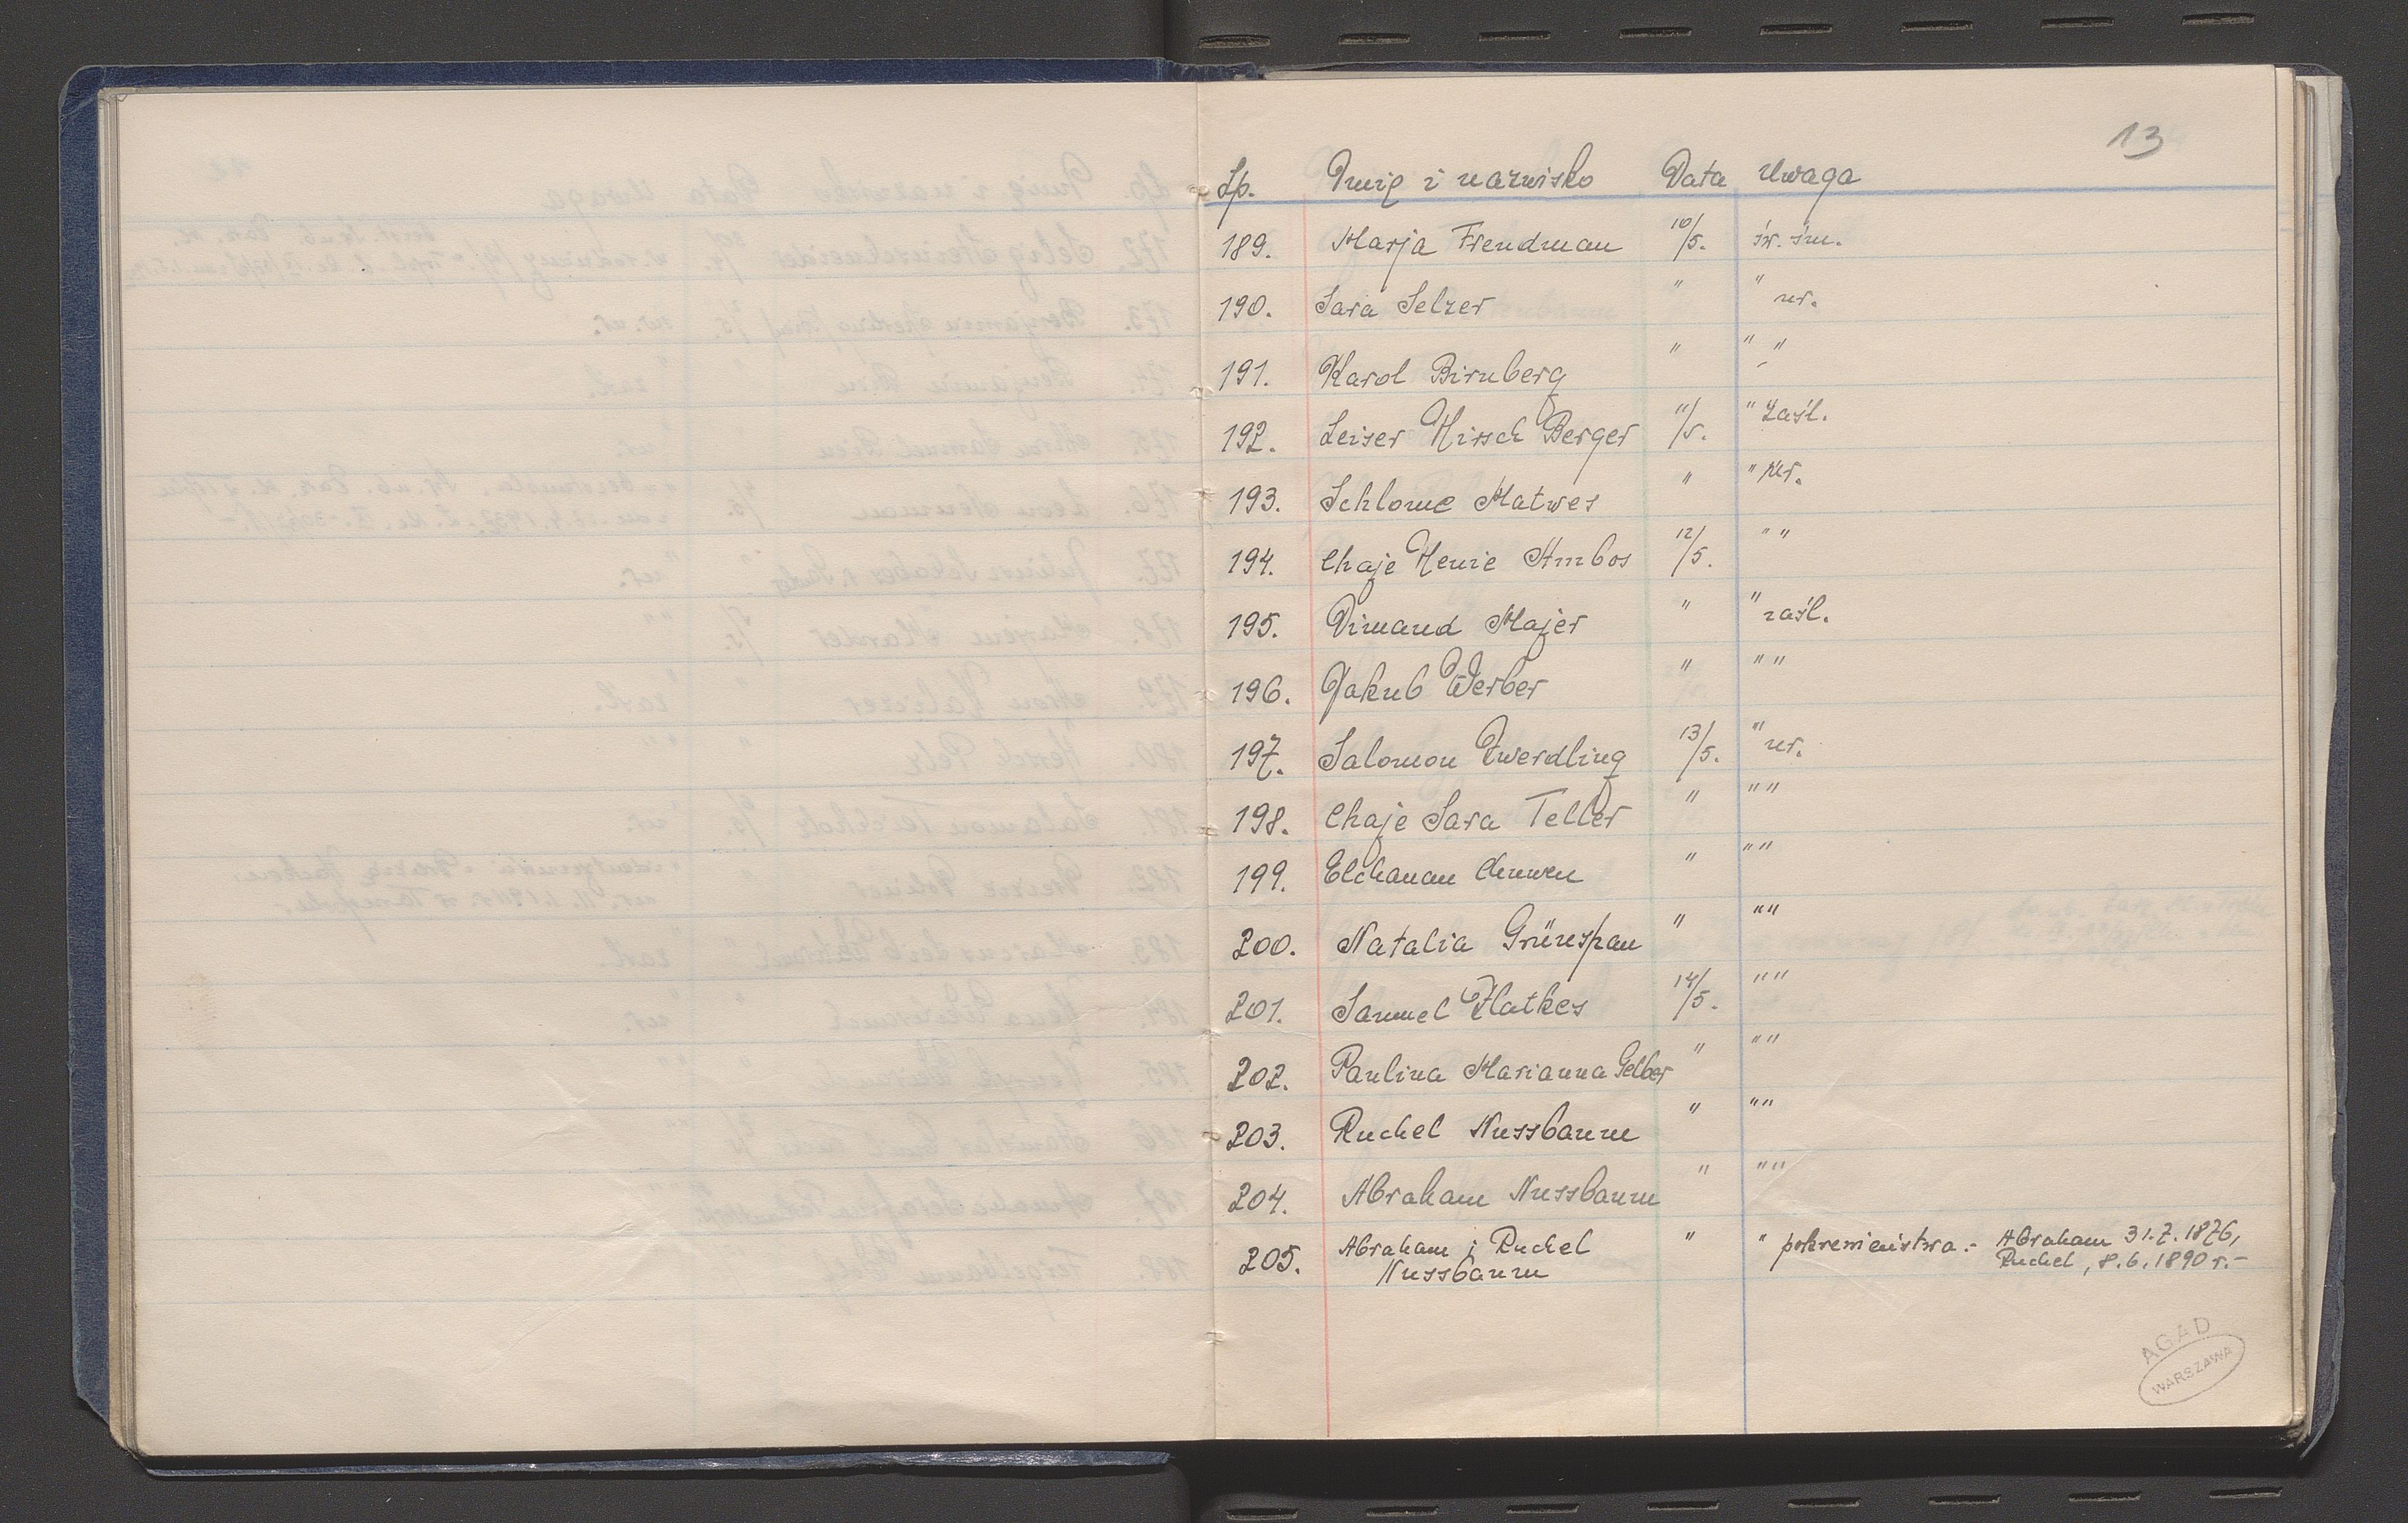 13
Lp. Imię i nazwisko Data Uwaga
189. Marja Frendman 10/5. św. śm.
190. Sara Selzer " " ur.
191. Karol Birnberg " " "
192. Leiser Hirsch Berger 11/5. " zaśl.
193. Schlome Matwes " " ur.
194. Chaje Henie Ambos 12/5. " "
195. Dimand Majer " " zaśl.
196. Jakub Werber " " "
197. Salomon Zwerdling 13/5. " ur.
198. Chaje Sara Teller " " "
199. Elchanan Chuwen " " "
200. Natalia Grünspan " " "
201. Samuel Flatkes 14/5. " "
202. Paulina Marianna Gelber " " "
203. Ruchel Nussbaum " " "
204. Abraham Nussbaum " " "
205. Abraham i Ruchel " " pokrewieństwa.- Abraham 31.7.1876,
Nussbaum Ruchel, 8.6.1890 r.-
AGAD
WARSZAWA